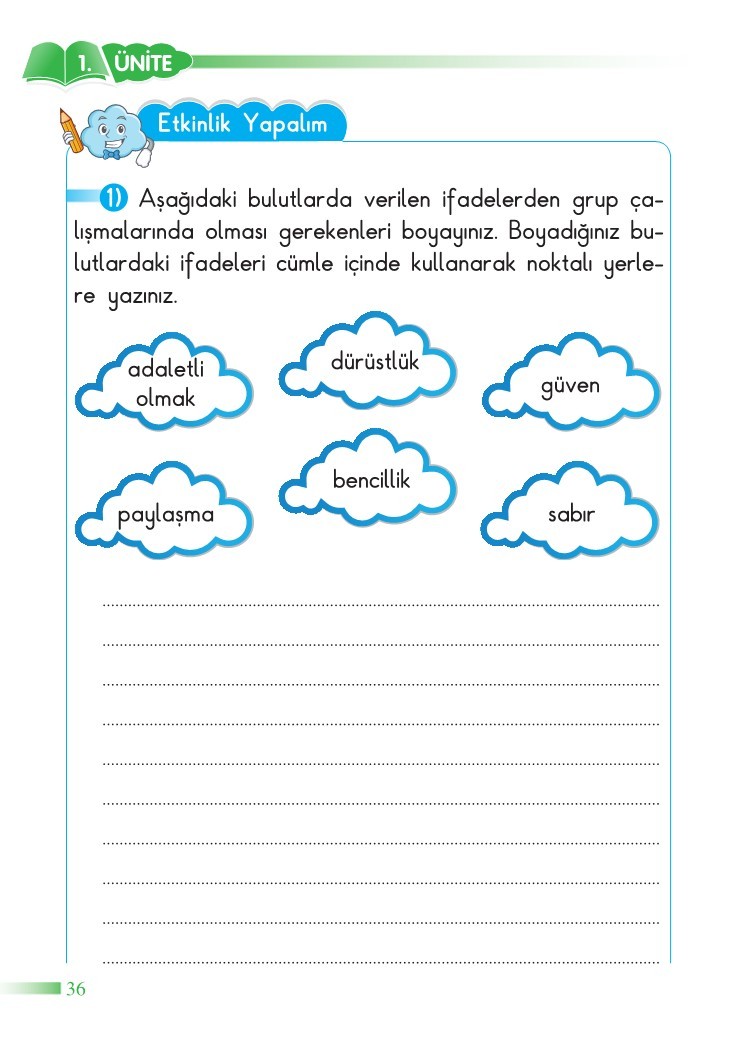 1. ÜNİTE
Etkinlik Yapalım
1) Aşağıdaki bulutlarda verilen ifadelerden grup ça-
lışmalarında olması gerekenleri boyayınız. Boyadığınız bu-
lutlardaki ifadeleri cümle içinde kullanarak noktalı yerle-
re yazınız.
adaletli
olmak
dürüstlük
güven
paylaşma
bencillik
sabır
36